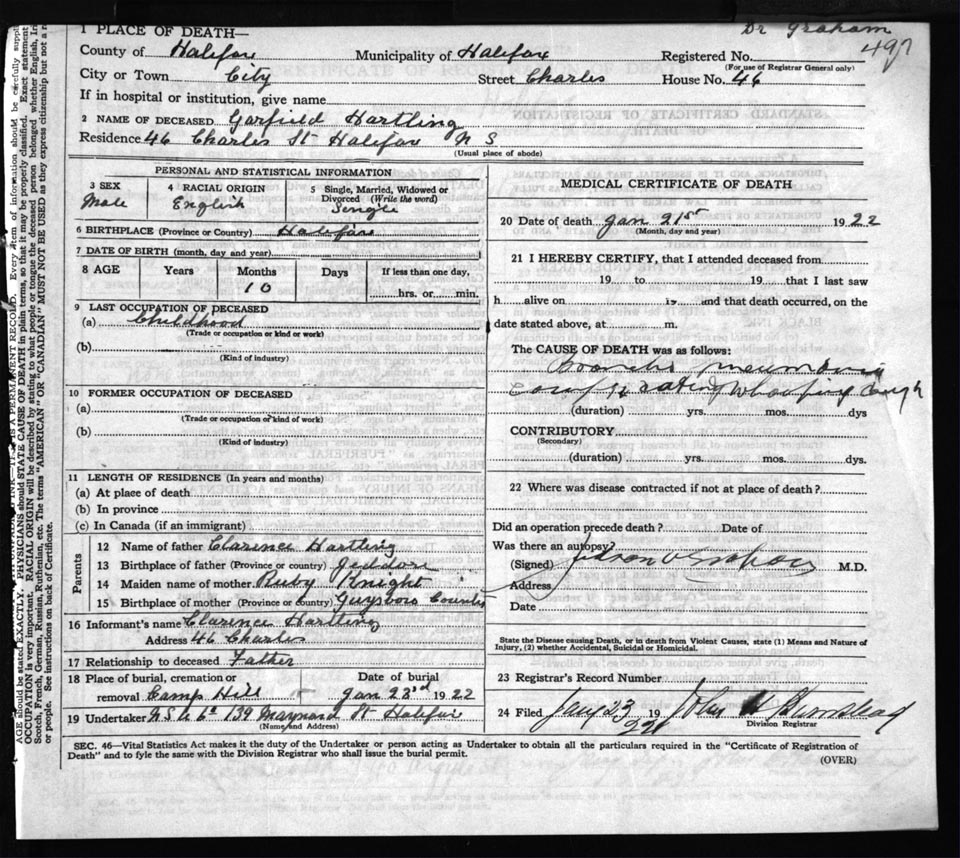 Dr Graham
497
1 PLACE OF DEATH—
County of Halifax Municipality of Halifax Registered No.
(For use of Registrar General only)
City or Town City Street Charles House No. 46
If in hospital or institution, give name
2 NAME OF DECEASED Garfield Hartling
Residence 46 Charles St Halifax N S
(Usual place of abode)
PERSONAL AND STATISTICAL INFORMATION
3 SEX Male 4 RACIAL ORIGIN English 5 Single, Married, Widowed or Divorced (Write the word) Single
6 BIRTHPLACE (Province or Country) Halifax
7 DATE OF BIRTH (month, day and year)
8 AGE Years Months Days If less than one day,
10 hrs. or min.
9 LAST OCCUPATION OF DECEASED
(a) Childhood
(Trade or occupation or kind or work)
(b)
(Kind of industry)
10 FORMER OCCUPATION OF DECEASED
(a)
(Trade or occupation or kind of work)
(b)
(Kind of industry)
11 LENGTH OF RESIDENCE (In years and months)
(a) At place of death
(b) In province
(c) In Canada (if an immigrant)
Parents
12 Name of father Clarence Hartling
13 Birthplace of father (Province or country) Jeddore
14 Maiden name of mother Ruby Knight
15 Birthplace of mother (Province or country) Guysboro County
16 Informant's name Clarence Hartling
Address 46 Charles
17 Relationship to deceased Father
18 Place of burial, cremation or Date of burial
removal Camp Hill Jan 23rd 1922
19 Undertaker N S U Co 139 Maynard St Halifax
(Name and Address)
MEDICAL CERTIFICATE OF DEATH
20 Date of death Jan 21st 1922
(Month, day and year)
21 I HEREBY CERTIFY, that I attended deceased from
19 to 19 that I last saw
h alive on 19 and that death occurred, on the
date stated above, at m.
The CAUSE OF DEATH was as follows:
Broncho pneumonia
Complicating Whooping Cough
(duration) yrs. mos. dys
CONTRIBUTORY
(Secondary)
(duration) yrs. mos. dys.
22 Where was disease contracted if not at place of death?
Did an operation precede death? Date of
Was there an autopsy?
(Signed) M.D.
Address
Date
State the Disease causing Death, or in death from Violent Causes, state (1) Means and Nature of
Injury, (2) whether Accidental, Suicidal or Homicidal.
23 Registrar's Record Number
24 Filed Jany 23 19 22 John H
Division Registrar
SEC. 46—Vital Statistics Act makes it the duty of the Undertaker or person acting as Undertaker to obtain all the particulars required in the "Certificate of Registration of
Death" and to fyle the same with the Division Registrar who shall issue the burial permit.
(OVER)
PERMANENT RECORD. Every item of information should be carefully
AGE should be stated EXACTLY. PHYSICIANS should STATE CAUSE OF DEATH in plain terms, so that it may be properly classified. Exact statement
OCCUPATION is very important. RACIAL ORIGIN will be described by stating to what people or tongue the deceased person belonged whether English,
Scotch, French, German, Russian, Ruthenian, etc. The terms "AMERICAN" or "CANADIAN" MUST NOT BE USED as they express citizenship but not a
or people. See instructions on back of Certificate.